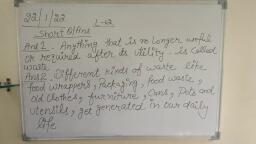 22/1/22
L-2
Short Q/Ans
Ans 1. Anything that is no longer useful
or required after its utility, is called
waste
Ans 2. Different kinds of waste like
food wrappers, Packaging, food waste,
old clothes, furniture, Cans, Pots and
utensils, get generated in our daily
life